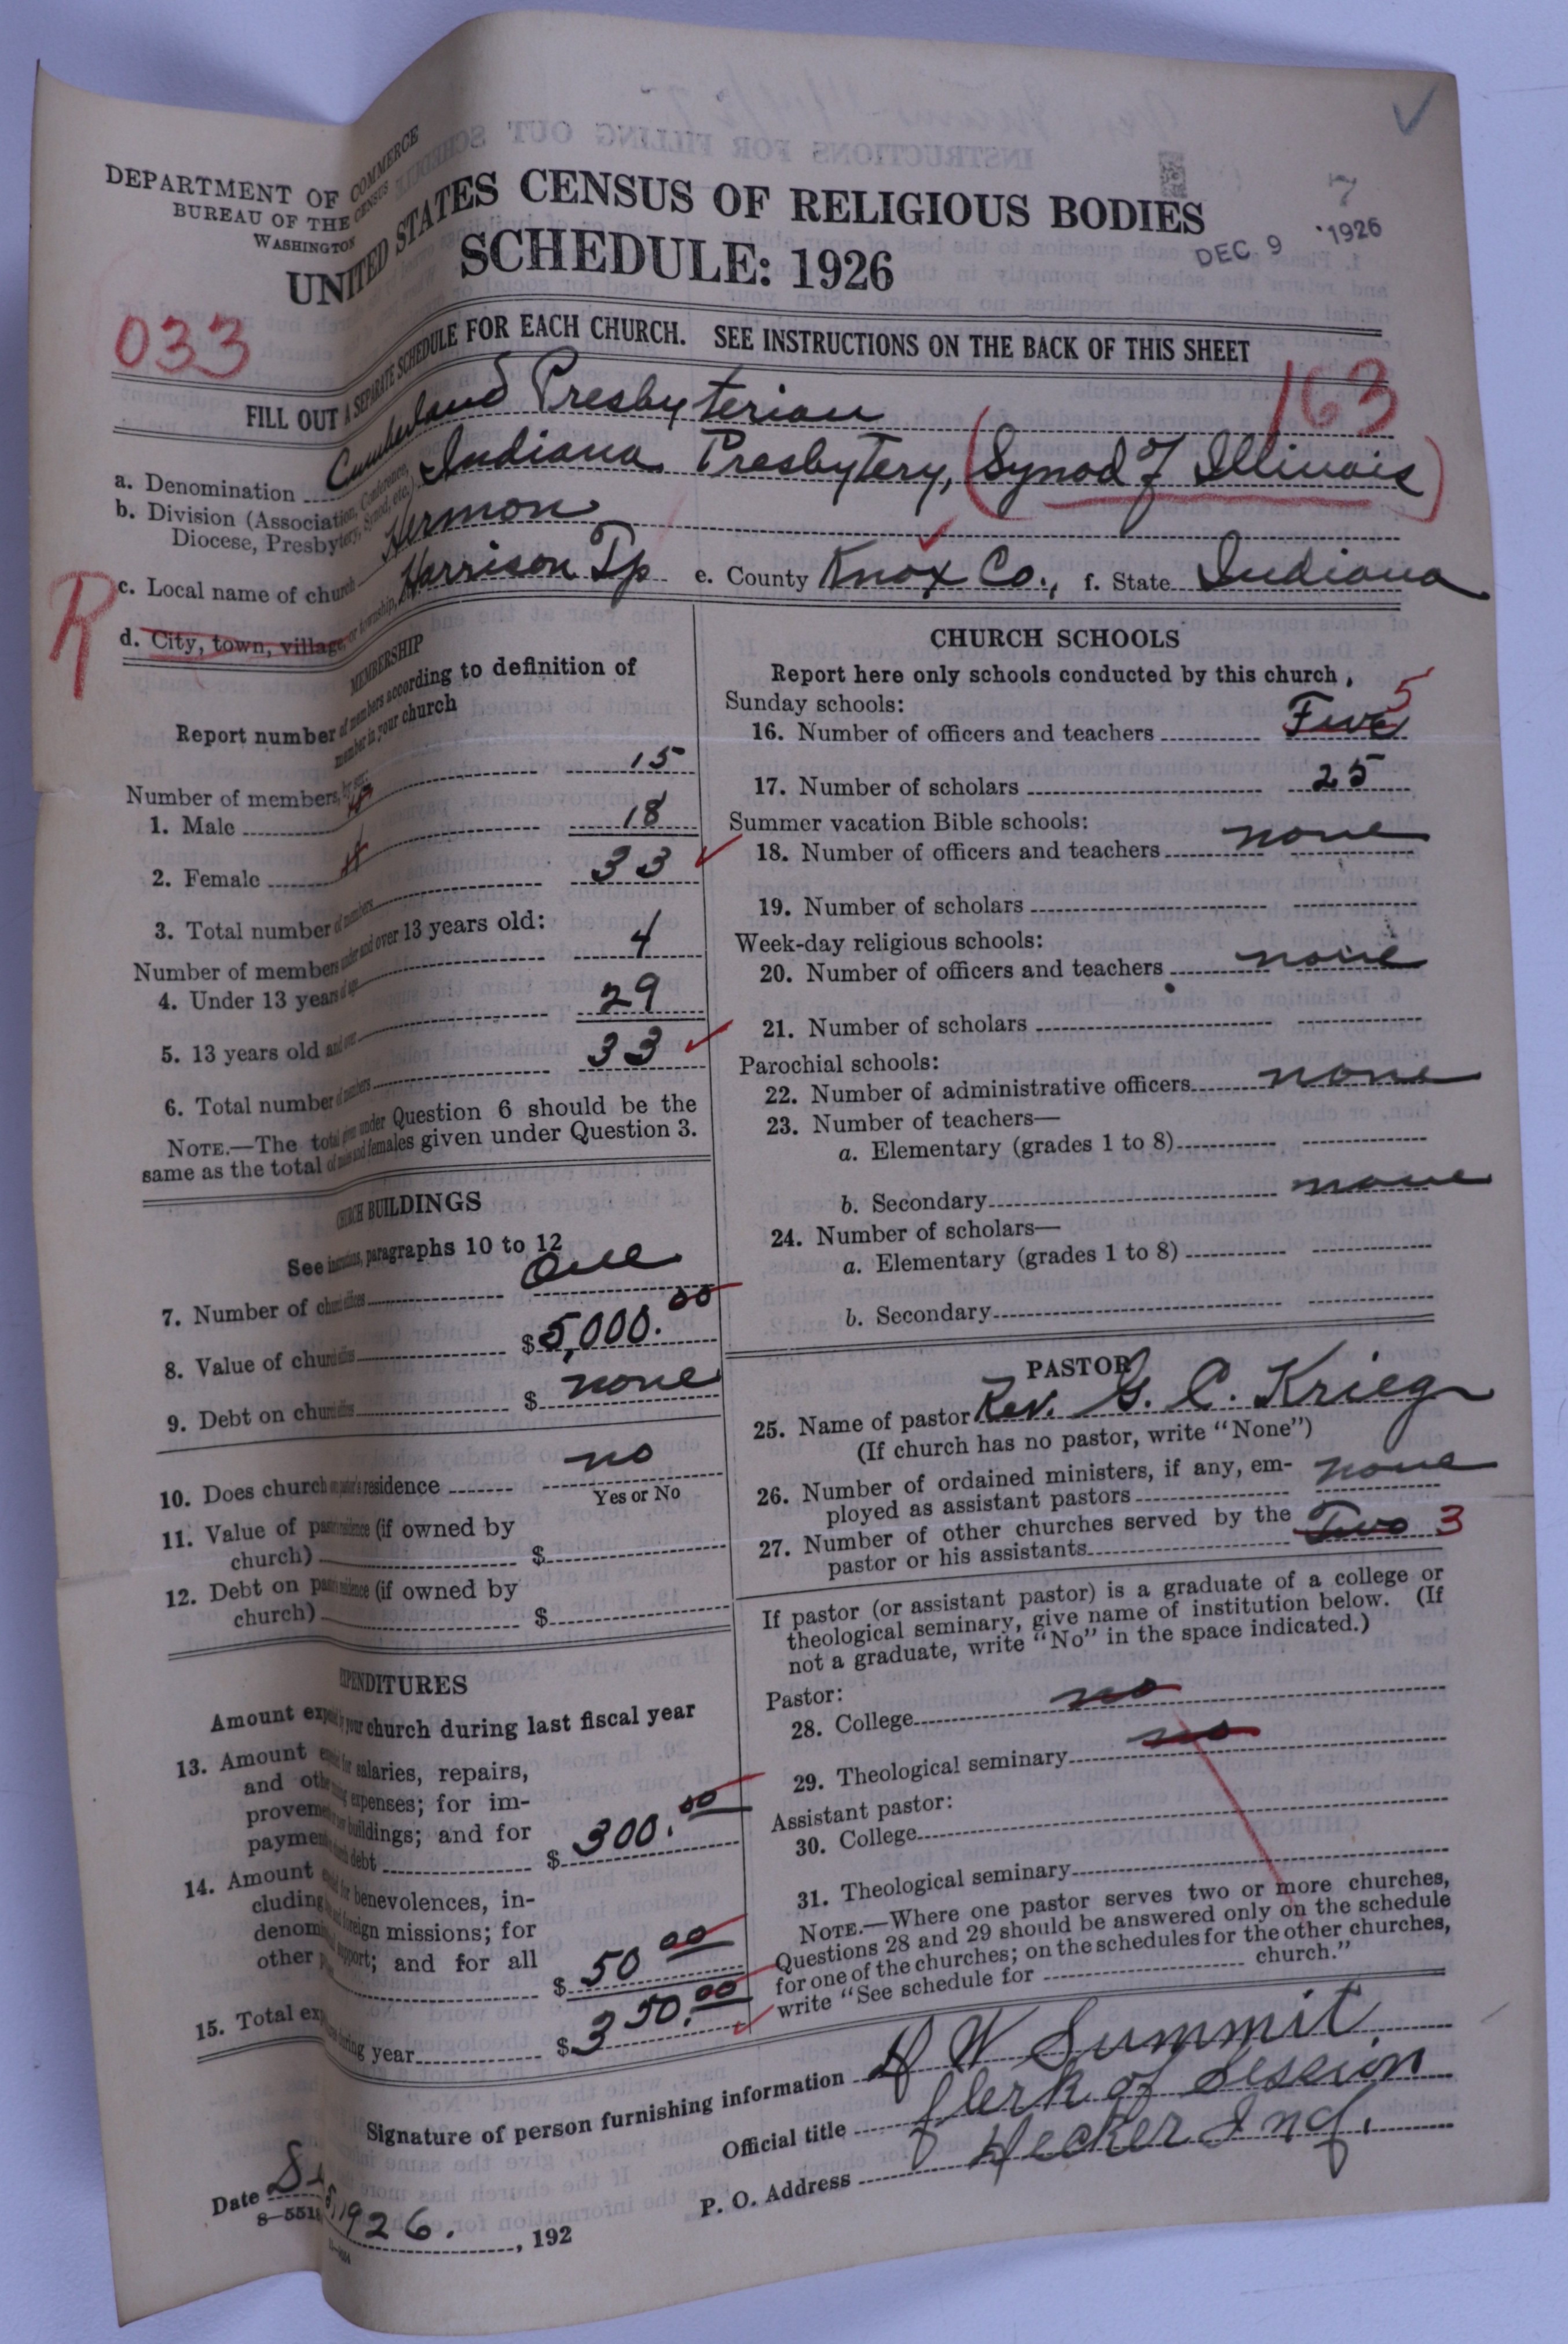 DEPARTMENT OF COMMERCE
BUREAU OF THE CENSUS
WASHINGTON
UNITED STATES CENSUS OF RELIGIOUS BODIES
SCHEDULE: 1926
7
DEC 9 1926
033
FILL OUT A SEPARATE SCHEDULE FOR EACH CHURCH. SEE INSTRUCTIONS ON THE BACK OF THIS SHEET
163
a. Denomination Cumberland Presbyterian
b. Division (Association, Conference, Diocese, Presbytery, Synod, etc.) Indiana Presbytery, (Synod of Illinois)
c. Local name of church Hermon
R
d. City, town, village, or township, Harrison Tp e. County Knox Co., f. State Indiana
MEMBERSHIP
Report number of members according to definition of
member in your church
Number of members, by sex:
1. Male 15
2. Female 18
3. Total number of members 33
Number of members under and over 13 years old:
4. Under 13 years of age 4
5. 13 years old and over 29
6. Total number of members 33
NOTE.—The total given under Question 6 should be the
same as the total of males and females given under Question 3.
CHURCH BUILDINGS
See instructions, paragraphs 10 to 12
7. Number of church edifices One
8. Value of church edifices $5,000.00
9. Debt on church edifices $ none
10. Does church own pastor's residence no
Yes or No
11. Value of pastor's residence (if owned by
church) $
12. Debt on pastor's residence (if owned by
church) $
EXPENDITURES
Amount expended by your church during last fiscal year
13. Amount expended for salaries, repairs,
and other running expenses; for im-
provements or buildings; and for
payments on church debt $ 300.00
14. Amount expended for benevolences, in-
cluding home and foreign missions; for
denominational support; and for all
other purposes $ 50 00
15. Total expenditures during year $ 350.00
CHURCH SCHOOLS
Report here only schools conducted by this church
Sunday schools:
16. Number of officers and teachers Five 5
17. Number of scholars 25
Summer vacation Bible schools:
18. Number of officers and teachers none
19. Number of scholars
Week-day religious schools:
20. Number of officers and teachers none
21. Number of scholars
Parochial schools:
22. Number of administrative officers none
23. Number of teachers—
a. Elementary (grades 1 to 8)
b. Secondary none
24. Number of scholars—
a. Elementary (grades 1 to 8)
b. Secondary
PASTOR
25. Name of pastor Rev. G. C. Krieg
(If church has no pastor, write "None")
26. Number of ordained ministers, if any, em-
ployed as assistant pastors none
27. Number of other churches served by the
pastor or his assistants Two 3
If pastor (or assistant pastor) is a graduate of a college or
theological seminary, give name of institution below. (If
not a graduate, write "No" in the space indicated.)
Pastor:
28. College no
29. Theological seminary no
Assistant pastor:
30. College
31. Theological seminary
NOTE.—Where one pastor serves two or more churches,
Questions 28 and 29 should be answered only on the schedule
for one of the churches; on the schedules for the other churches,
write "See schedule for church."
Signature of person furnishing information D W Summit
Official title Clerk of Session
P. O. Address Decker Ind.
Date 1926. , 192